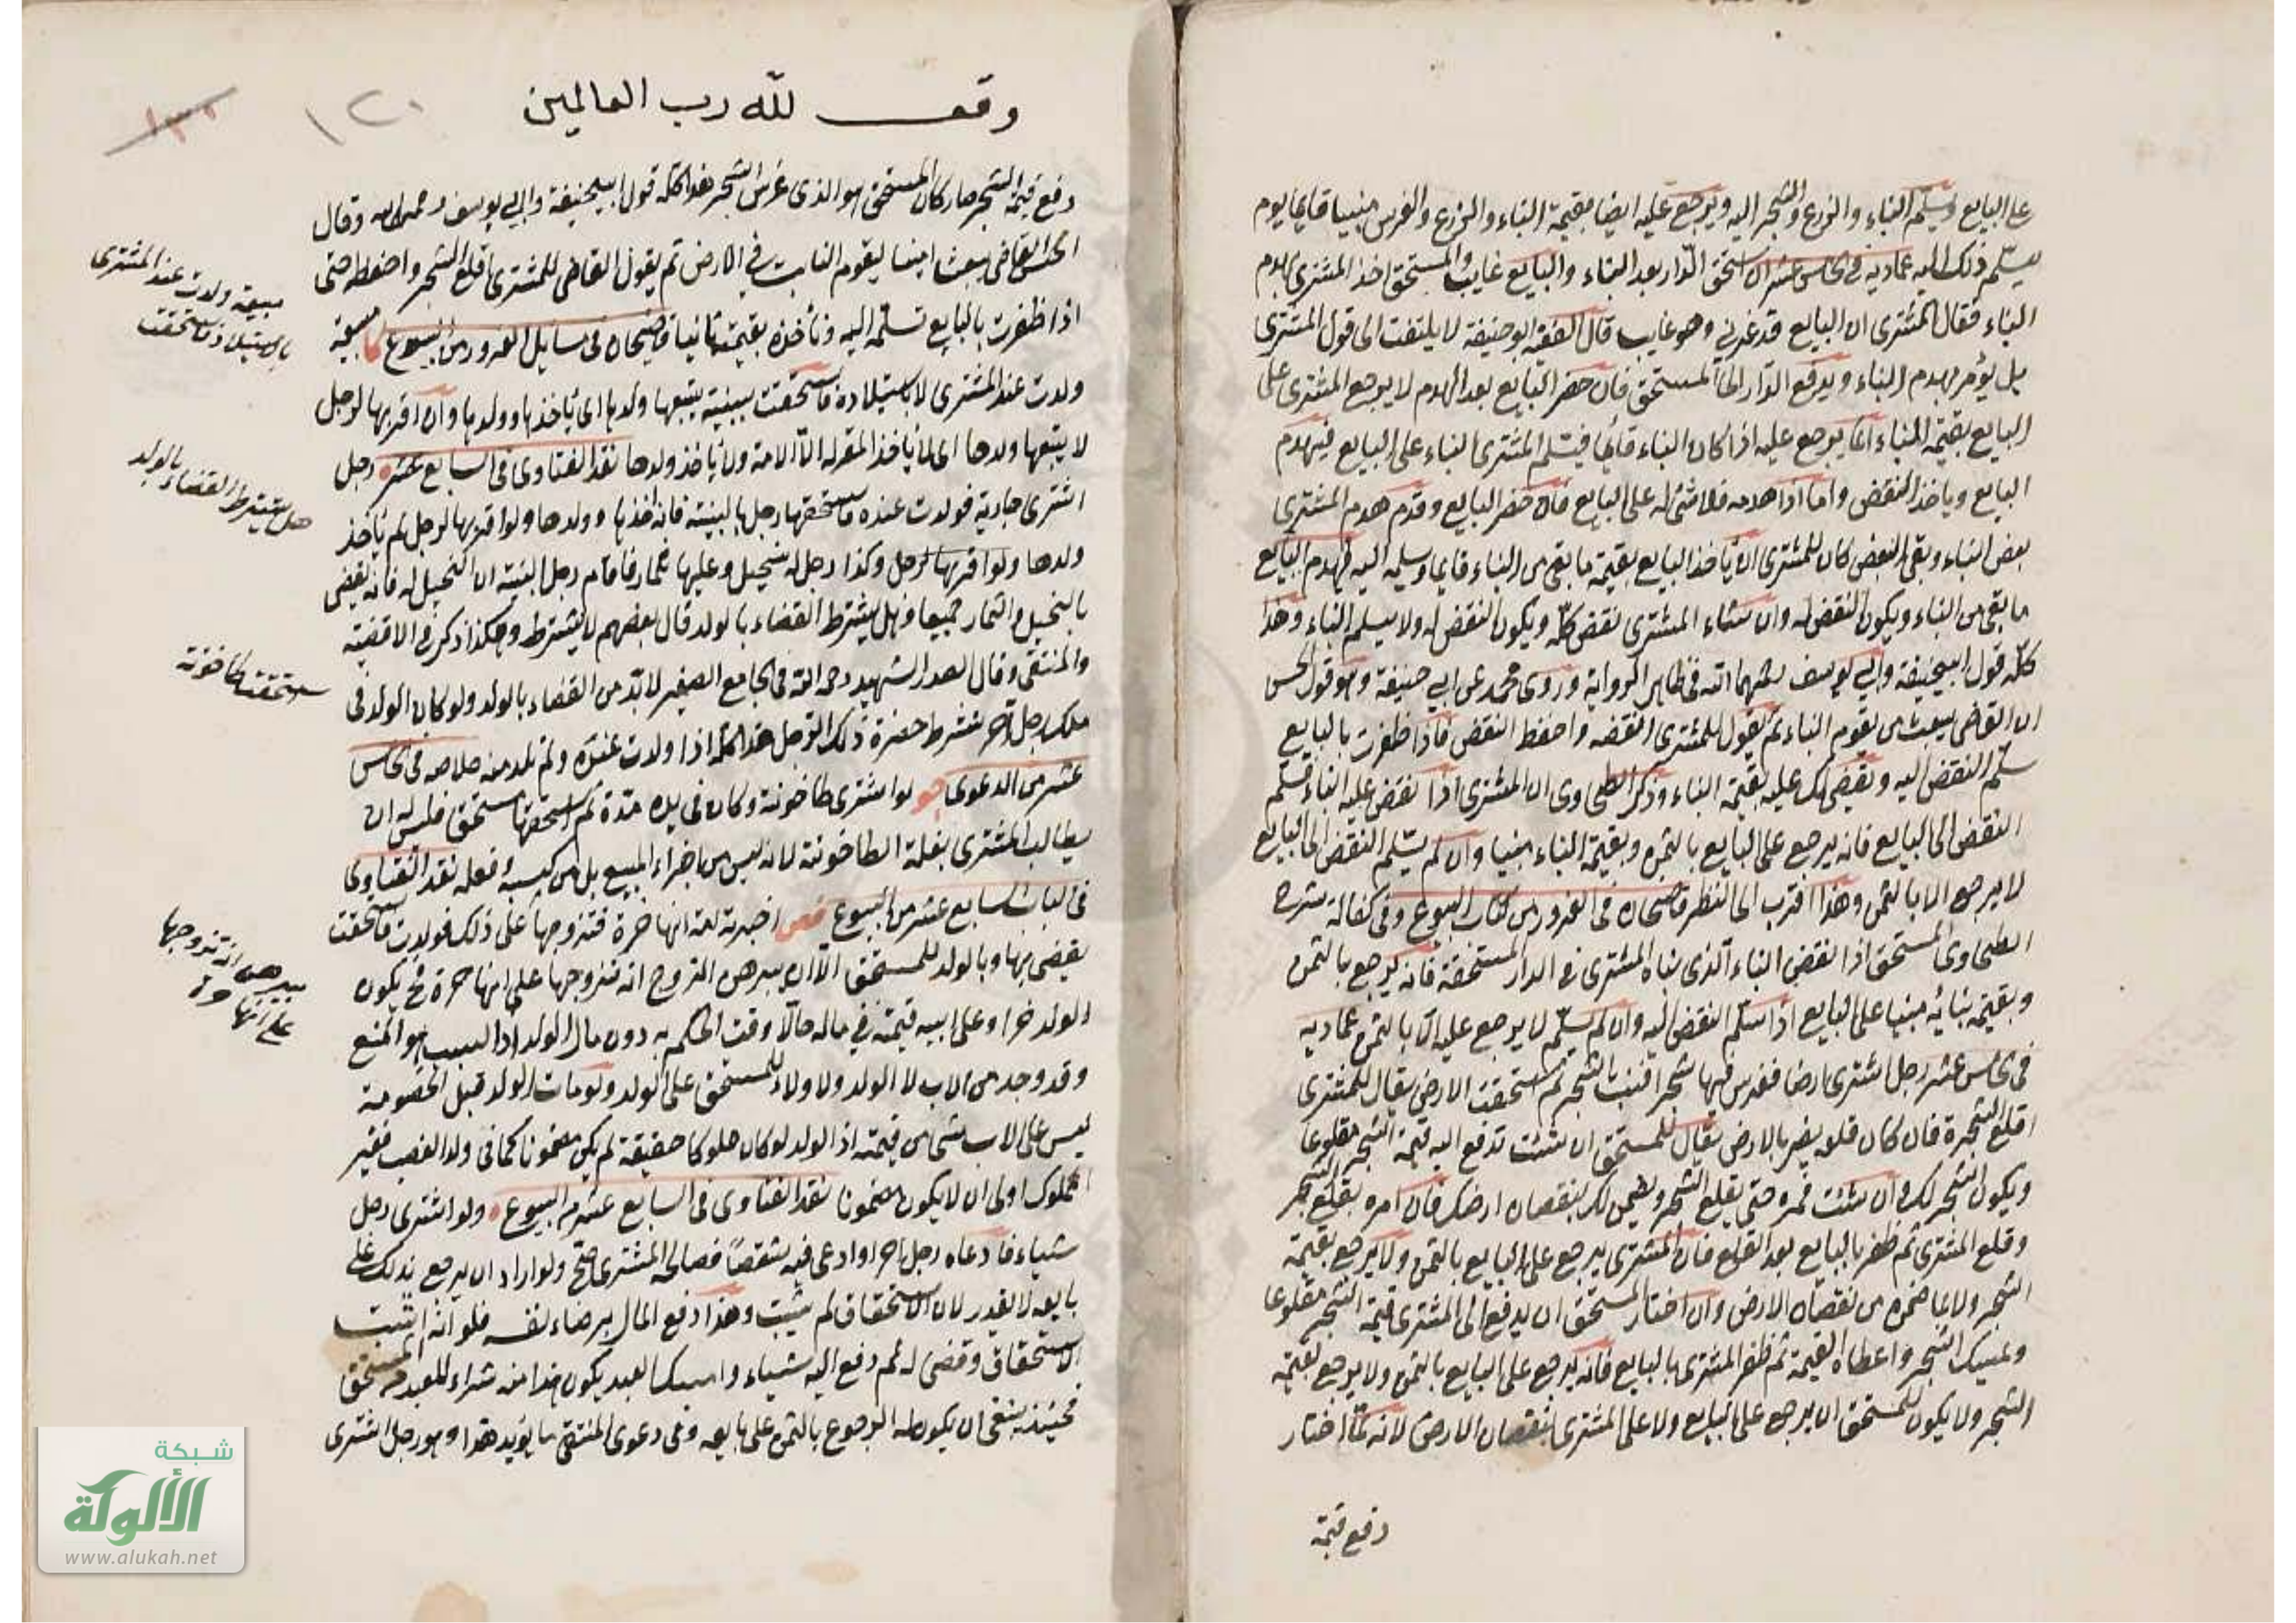 على البايع ويسلم البناء والزرع والشجر اليه ويرجع عليه ايضا بقيمة البناء والزرع والغرس مبنيا قايما يوم
يسلم ذلك اليه عماديه في الخامس عشر ان استحق الدار بعد البناء والبايع غايب والمستحق اخذ المشتري بهدم
البناء فقال المشتري ان البايع قد غرني وهو غايب قال الفقيه ابو حنيفة لا يلتفت الى قول المشتري
بل يؤمر بهدم البناء ويدفع الدار الى المستحق فان حضر البايع بعد الهدم لا يرجع المشتري على
البايع بقيمة البناء انما يرجع عليه اذا كان البناء قائما فيسلم المشتري البناء على البايع فيهدم
البايع وياخذ النقض واما اذا هدمه فلا شئ له على البايع فان حضر البايع وقدم هدم المشتري
بعض البناء وبقي البعض كان للمشتري ان ياخذ البايع بقيمة ما بقى من البناء قايما ويسلمه اليه فيهدم البايع
ما بقى من البناء ويكون النقض له وان شاء المشتري نقض كله ويكون النقض له ولا يسلم البناء وهذا
كله قول ابيحنيفة وابي يوسف رحمهما الله في ظاهر الرواية وروى محمد عن ابي حنيفة وهو قول الحسن
ان القاضي يبعث من يقوم البناء ثم يقول للمشتري انقضه واحفظ النقض فاذا ظفرت بالبايع
سلم النقض اليه ويقضي لك عليه بقيمة البناء وذكر الطحاوي ان المشتري اذا نقض عليه البناء فسلم
النقض الى البايع فانه يرجع على البايع بالثمن وبقيمة البناء مبنيا وان لم يسلم النقض الى البايع
لا يرجع الا بالثمن وهذا اقرب الى النظر قاضيخان في الغرور من كتاب البيوع وفي كفالة شرح
الطحاوي المستحق اذا نقض البناء الذي بناه المشتري في الدار المستحقة فانه يرجع بالثمن
وبقيمة بنائه مبنيا على البايع اذا سلم النقض اليه وان لم يسلم لا يرجع عليه الا بالثمن عماديه
في الخامس عشر رجل اشترى ارضا فغرس فيها شجرا فنبت الشجر ثم استحقت الارض يقال للمشتري
اقلع الشجرة فان كان قلعه يضر بالارض يقال للمستحق ان شئت تدفع اليه قيمة الشجر مقلوعا
ويكون الشجر لك وان شئت فمره حتى يقلع الشجر ويضمن لك نقصان ارضك فان امره بقلع الشجر
وقلع المشتري ثم ظفر بالبايع بعد القلع فان المشتري يرجع على البايع بالثمن ولا يرجع بقيمة
الشجر ولا بما ضمن من نقصان الارض وان اختار المستحق ان يدفع الى المشتري قيمة الشجر مقلوعا
ويمسك الشجر واعطاه القيمة ثم ظفر المشتري بالبايع فانه يرجع على البايع بالثمن ولا يرجع بقيمة
الشجر ولا يكون للمستحق ان يرجع على البايع ولا على المشتري بنقصان الارض لانه لما اختار
دفع قيمة
وقف لله رب العالمين
١٢٠
دفع قيمة الشجر صار كان المستحق هو الذي غرس الشجر هذا كله قول ابيحنيفة وابي يوسف رحمهما الله وقال
الحسن القاضي يبعث امينا ليقوم النابت في الارض ثم يقول القاضي للمشتري اقلع الشجر واحفظه حتى
اذا ظفرت بالبايع تسلمه اليه وتأخذه بقيمته نابتا قاضيخان في مسايل الغرور من البيوع مبيعة
ولدت عند المشتري لا باستيلاده فاستحقت ببينة يتبعها ولدها اي يأخذها وولدها وان اقر بها لرجل
لا يتبعها ولدها اي لا يأخذ المقر له الا الامة ولا يأخذ ولدها نقد الفتاوى في السابع عشر رجل
اشترى جارية فولدت عنده فاستحقها رجل بالبينة فانه يأخذها وولدها ولو اقر بها لرجل لم يأخذ
ولدها ولو اقر بها لرجل وكذا رجل له نخيل وعليها ثمار فاقام رجل البينة ان النخيل له فانه يقضى
بالنخيل والثمار جميعا وهل يشترط القضاء بالولد قال بعضهم لا يشترط وهكذا ذكر في الاقضية
والمنتقى وقال الصدر الشهيد رحمه الله في الجامع الصغير لا بد من القضاء بالولد ولو كان الولد في
ملك رجل آخر يشترط حضرة ذلك الرجل هذا كله اذا ولدت عنده ولم تلد منه خلاصه في الخامس
عشر من الدعوى لو اشترى طاحونة وكان في يده مدة ثم استحقها مستحق فليس له ان
يطالب المشتري بغلة الطاحونة لانه ليس من اجزاء المبيع بل من كسبه وفعله نقد الفتاوى
في الباب السابع عشر من البيوع اخبرته امة انها حرة فتزوجها على ذلك فولدت فاستحقت
يقضى بها وبالولد للمستحق الا ان يبرهن الزوج انه تزوجها على انها حرة فح يكون
الولد حرا وعلى ابيه قيمته في ماله حالا وقت الحكم به دون مال الولد اذ السبب هو المنع
وقد وجد من الاب لا الولد ولا ولاء للمستحق على الولد ولو مات الولد قبل الخصومة
ليس على الاب شئ من قيمته اذ الولد لو كان مملوكا حقيقة لم يكن مضمونا كما في ولد الغصب فغير
المملوك اولى ان لا يكون مضمونا نقد الفتاوى في السابع عشر من البيوع ولو اشترى رجل
شياء فادعاه رجل اخر او ادعى فيه شقصا فصالحه المشتري صح ولو اراد ان يرجع بذلك على
بايعه لا يقدر لان الاستحقاق لم يثبت وهذا دفع المال برضاء نفسه فلو انه اثبت
الاستحقاق وقضى له ثم دفع اليه شياء وامسك العبد يكون هذا منه شراء للعبد من المستحق
فحينئذ ينبغي ان يكون له الرجوع بالثمن على بايعه وفي دعوى المنتقى ما يؤيد هذا وهو رجل اشترى
مبيعة ولدت عند المشتري
باستيلاد فاستحقت
هل يشترط القضاء بالولد
استحقت طاحونة
يبرهن انه تزوجها
على انها حرة
شبكة
الألوكة
www.alukah.net